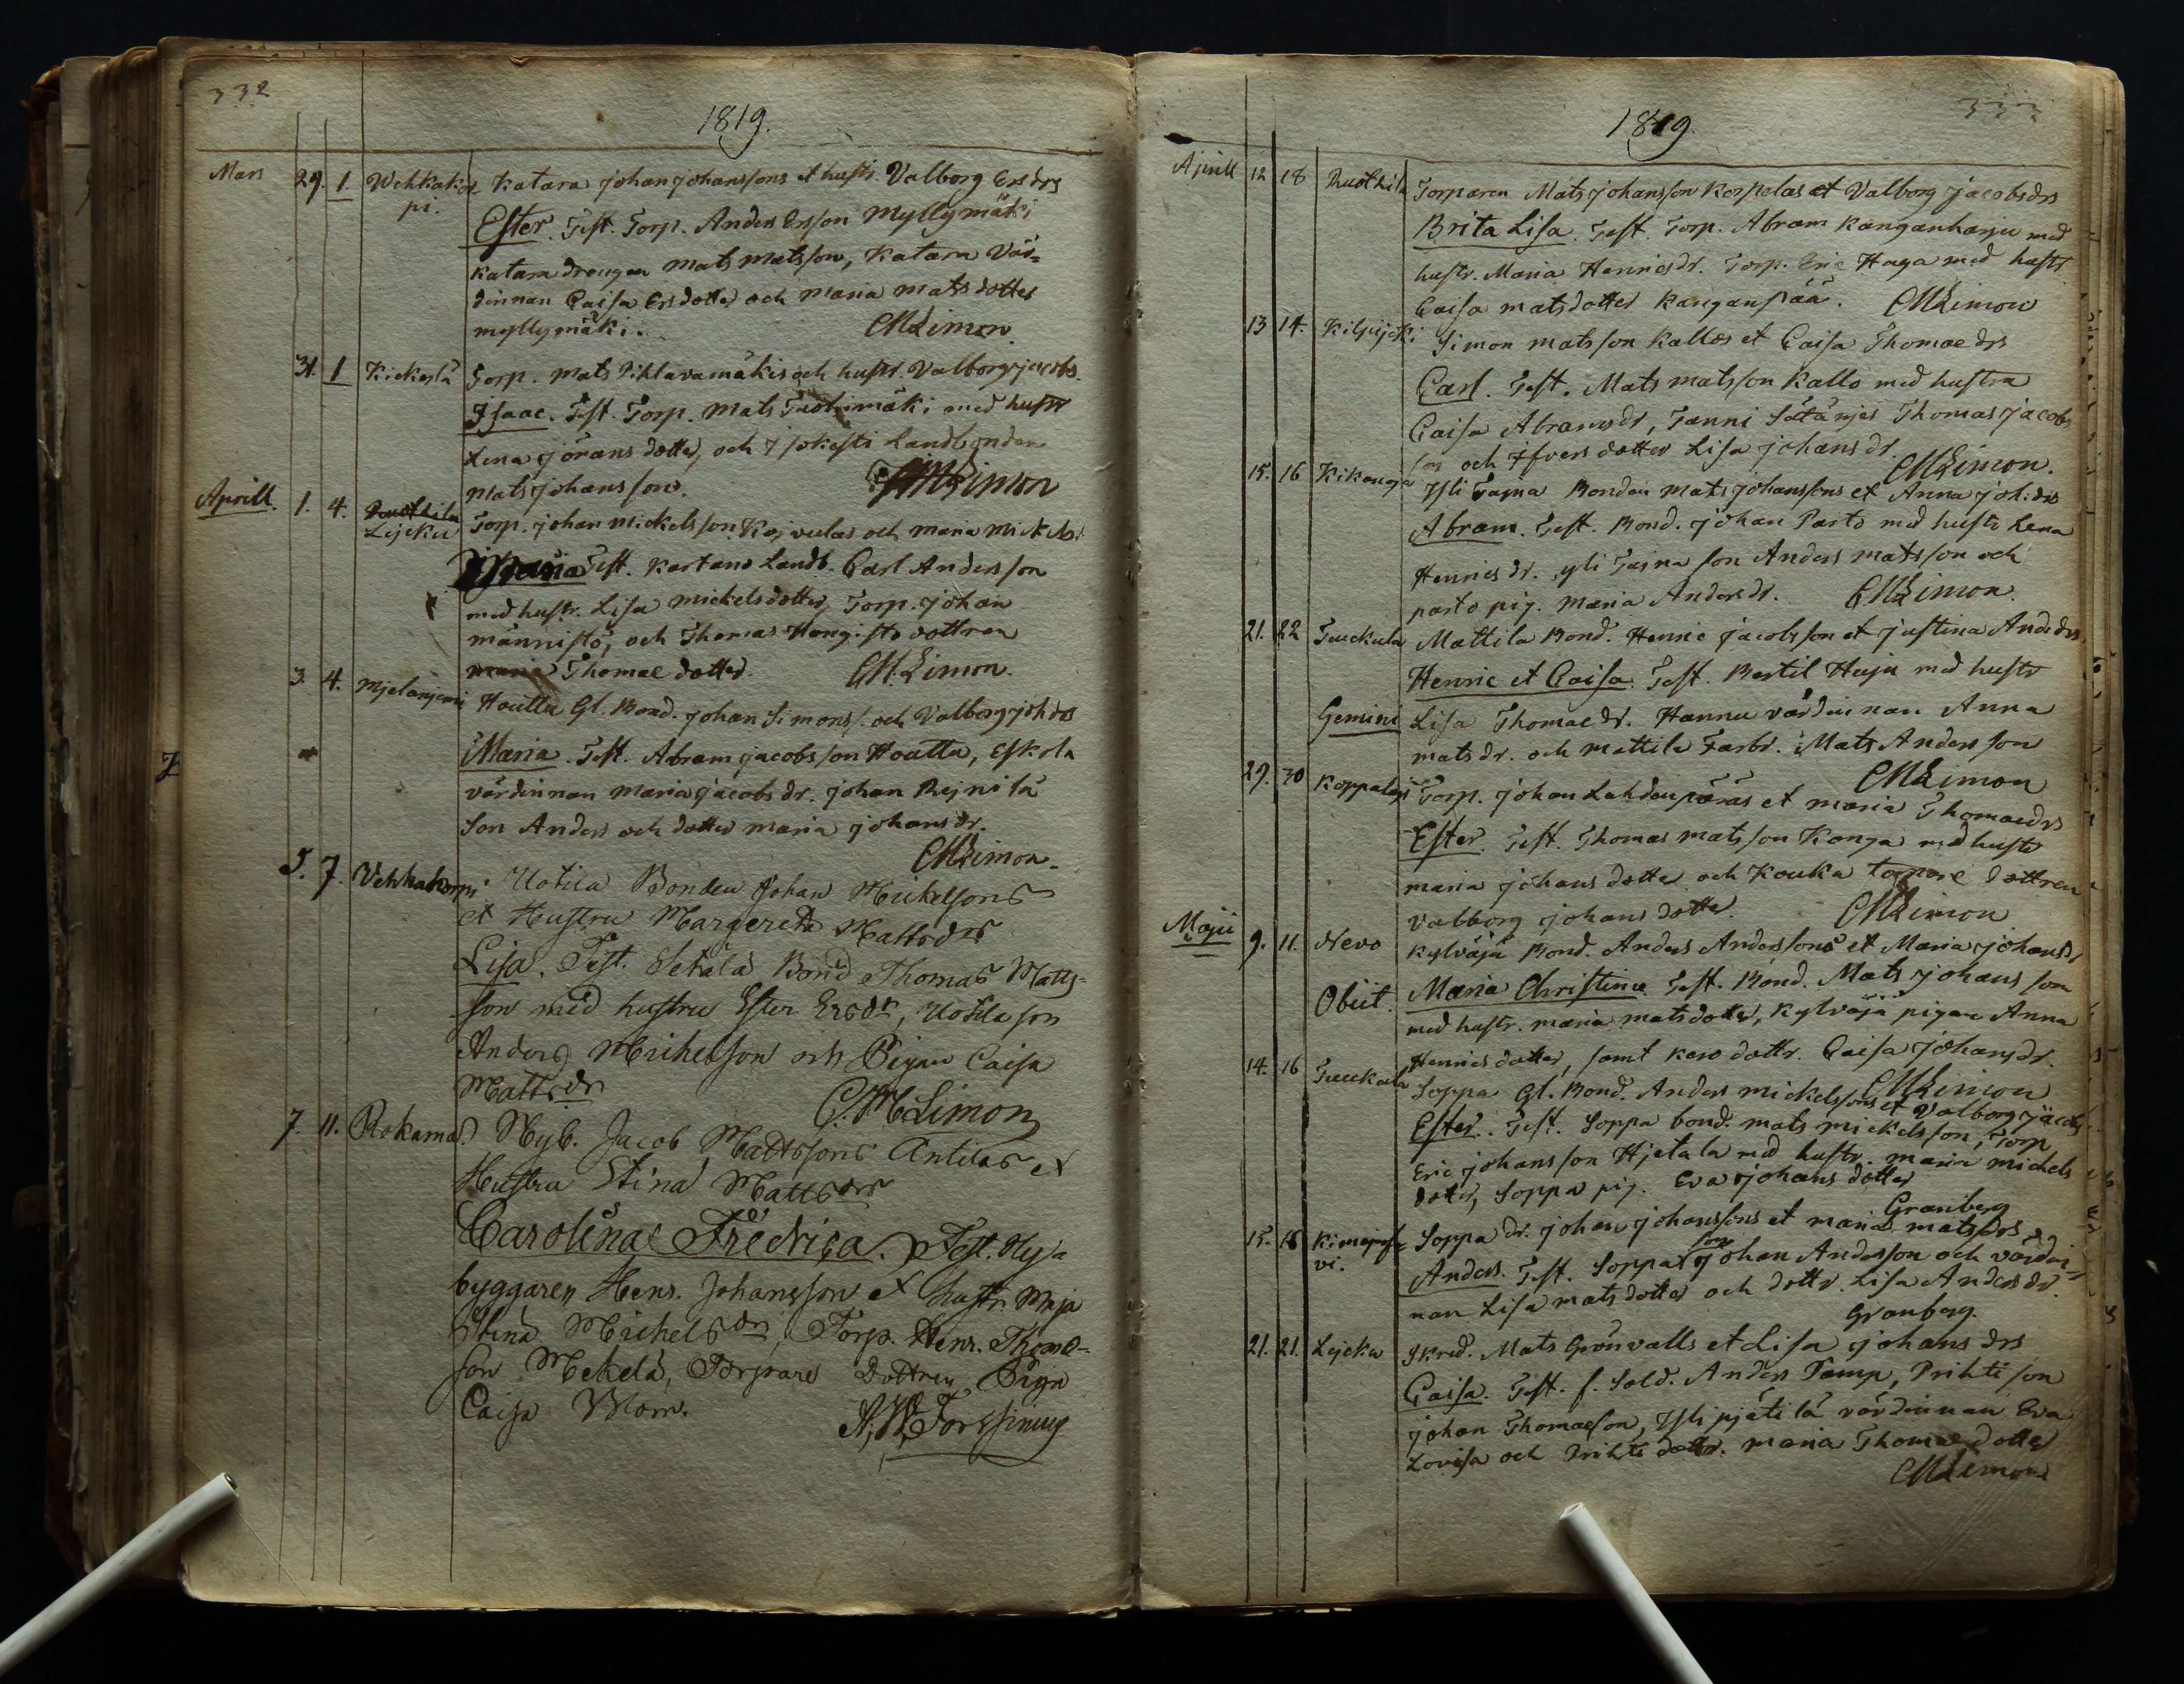 332
1819.
Mars 29. 1. Wehkakor Katara johan johanssons et hustr. Valborg Ersdrs
pi. Ester. Test. Torp. Anders Ersson Myllymäki
Katara drengen Mats Matsson, Katara Vär=
dinnan Caisa Ersdotter och Maria Mats dotter
myllymäki. CMLimon.
31. 1 Kickerlä Torp. Mats Pihlavamäkis och hustr. Valborg jacobs.
Isaac. Test. Torp. Mats Tuohimäki med hustr
Lena jörans dotter, och Landbonden
Mats johansson. CMLimon
Aprill. 1. 4. Ruokila Torp. johan Mickelsson Kojvulas och Maria Mickelsd.
Lejcku
Maria Test. Kartano Landb. Carl Andersson
med hustr. Lisa Mickelsdotter, Torp. johan
männistö, och Thomas Hongisto dottren
maria Thomae dotter. CM.Limon.
3. 4. Mjelanjemi Houttu Gl. Bond. johan Simons s. och Valborg joh. drs
Maria. Test. Abram jacobsson Houttu, Eskola
värdinnan Maria jacobs dr. johan Rejnilä
Son Anders och dotter maria johansdr.
CMLimon.
5. 7. Vehkakorpi Uotila Bonden Johan Mickelsons
et Hustru Margereta Mattsdrs
Lisa. Test. Setälä Bond Thomas Matts=
son med hustru Ester Ersdr, Uotila son
Anders Michelson och Pigan Caisa
Mattsdr C. M Limon
7. 11. Rokama. Nyb. Jacob Mattssons Antilas et
Hustru Stina Mattsdrs
Carolina Fredrica. Test. Ny
byggaren Henr. Johansson et hustr. Maja
Stina Michelsdr, Torp. Henr. Thom=
son Mekelä, Torpare Dottren Pign
Caisa A. W. Forssinius
333
1819.
Aprill 12 18 Ruokila Torparen Mats johansson Korpelas et Valborg jacobsdrs
Brita Lisa. Test. Torp. Abram Kanganharju med
hustr. Maria Henricsdr. Torp. Eric Haga med hustr
Caisa matsdotter Kanganpää. CMLimon
13 14. Kilpijoki Simon matsson Kallos et Caisa Thomae drs
Carl. Test. Mats matsson Kallo med hustru
Caisa Abramsdr, Tanni Thomas jacobs
son och Ifvers dotter Lisa johans dr. CMLimon.
15. 16 Kikanoja Yli Tajna Bonden Mats johanssons et Anna joh. drs
Abram. Test. Bond. johan Parto med hustr Lena
Henrics dr. yli Tajna son Anders matsson och
parto pig. Maria Anders dr. CMLimon.
21. 22 Tuuckula Mattila Bond. Henric jacobsson et justina Andersdrs
Henric et Caisa. Test. Bertil Heju med hustr
Gemini Lisa Thomaedr. Hannu värdinnan Anna
mats dr. och mattila Farbr. Mats Andersson
CMLimon
29. 30 Koppaloja Torp. johan Lahdenperäs et maria Thomaedrs
Ester. Test. Thomas matsson Konga med hustr
maria johans dotter och Kouka torpare dottren
valborg johans dotter. CMLimon
Majii 9. 11. Nevo Kylväjä Bond. Anders Anderssons et Maria johansdr
Obiit. Maria Christina. Test. Bond. Mats johansson
med hustr. maria mats dotter, Kylväjä pigan Anna
Henrics dotter, samt Kero dottr. Caisa johansdr.
CMLimon
14. 16 Tuuckula Soppa Gl. Bond. Anders mickelssons et Valborg jacobs
Ester. Test. Soppa bond. mats mickelsson, Torp
Eric johansson Hjetala med hustr. maria mickels
dotter, Soppa pig. Eva johans dotter
Granberg
15. 16 Kimajer
vi. Soppa dr. johan johanssons et maria matsdrs
Anders. Test. Soppa son johan Andersson och värdin
nan Lisa mats dotter och dottr. Lisa Anders dr.
Granberg.
21. 21. Lejcku Skred. Mats Grönvalls et Lisa johans drs
Caisa. Test. f. Sold. Anders Tamp, Prihti son
johan Thomaeson, Yli pjätilä värdinnan Eva
Lovisa och Prihti dottr. maria Thomae dotter
CMLimon